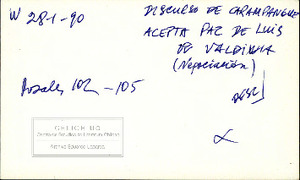 W 281-90
DISCURSO DE CARAMPANGUE
ACEPTA PAZ DE LUIS
DE VALDIVIA
(Negociación)
Rosales 102-105
CELICH UC